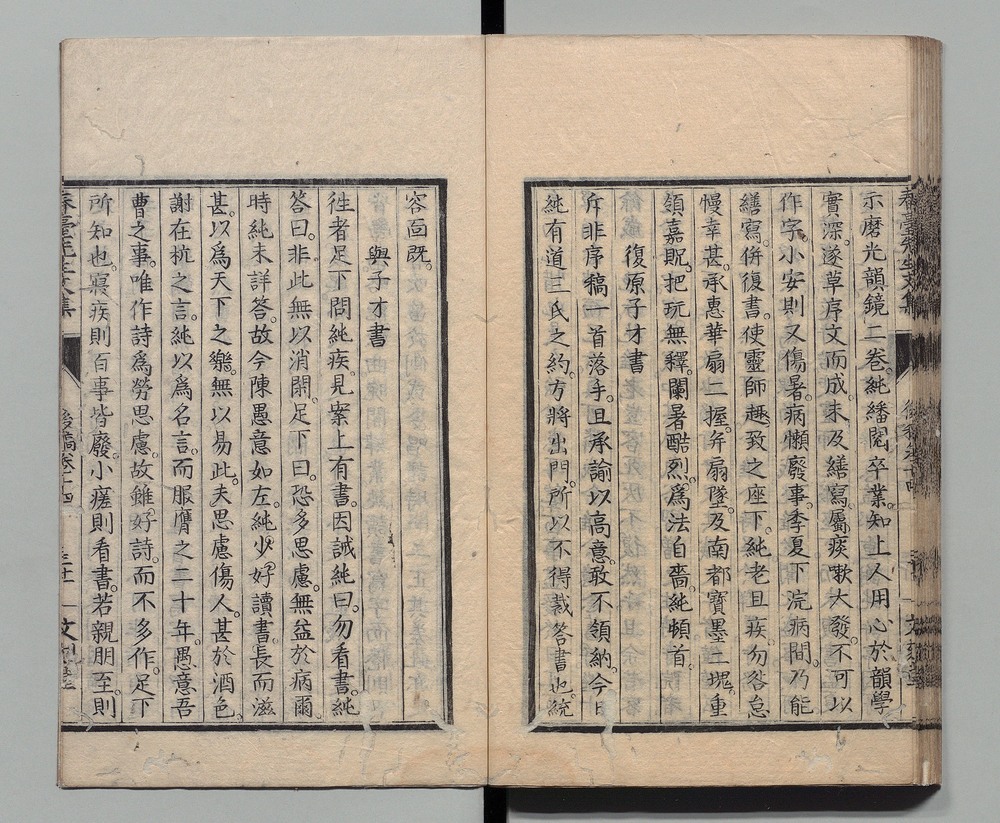 示磨光韻鏡二卷。純繙閱卒業。知上人用心於韻學
實深。遂草序文而成。未及繕寫。屬痰嗽大發。不可以
作字。小安則又傷暑。病懶廢事。季夏下浣病間。乃能
繕寫。併復書。使靈師趣致之座下。純老且疾。勿咎怠
慢幸甚。承惠華扇二握。弁扇墜。及南都寶墨二塊。重
領嘉貺。把玩無釋。闌暑酷烈。爲法自嗇。純頓首。
復原子才書
斥非序稿一首落手。且承諭以高意。敢不領納。今日
純有道三氏之約。方將出門。所以不得裁答書也。統
容面既。
與子才書
徃者足下問純疾。見案上有書。因誡純曰。勿看書。純
答曰。非此無以消閑。足下曰。恐多思慮。無益於病爾。
時純未詳答。故今陳愚意如左。純少好讀書。長而滋
甚。以爲天下之樂。無以易此。夫思慮傷人。甚於酒色。
謝在杭之言。純以爲名言。而服膺之二十年。愚意吾
曹之事。唯作詩爲勞思慮。故雖好詩。而不多作。足下
所知也。寢疾則百事皆廢。小瘥則看書。若親朋至。則
春臺先生文集
後稿卷十四